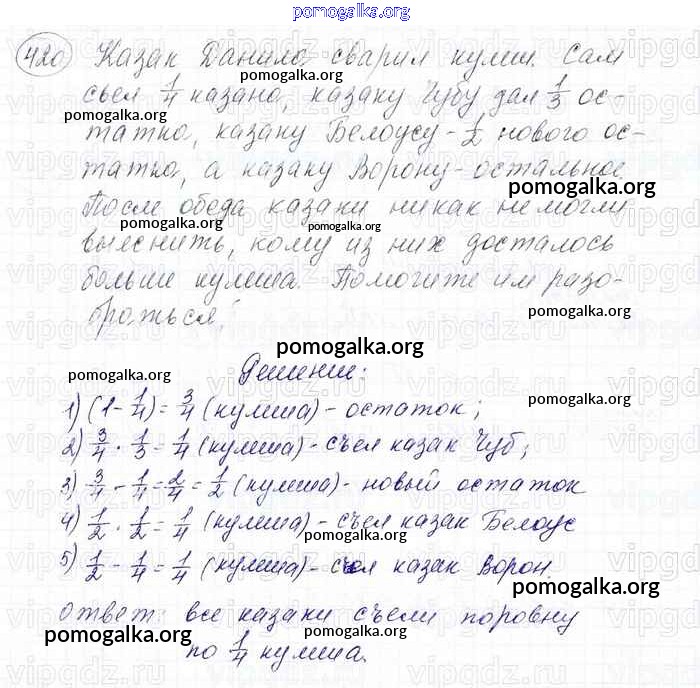 pomogalka.org
420 Казак Данило сварил кулиш. Сам
pomogalka.org
съел 1/4 казана, казаку Чубу дал 1/3 ос-
pomogalka.org
татка, казаку Белоусу - 1/2 нового ос-
татка, а казаку Ворону - остальное.
pomogalka.org
После обеда казаки никак не могли
pomogalka.org pomogalka.org
выяснить, кому из них досталось
больше кулиша. Помогите им разо-
браться!
pomogalka.org
Решение:
pomogalka.org
1) (1 - 1/4) = 3/4 (кулиша) - остаток;
pomogalka.org
2) 3/4 · 1/3 = 1/4 (кулиша) - съел казак Чуб;
pomogalka.org
3) 3/4 - 1/4 = 2/4 = 1/2 (кулиша) - новый остаток
pomogalka.org
4) 1/2 · 1/2 = 1/4 (кулиша) - съел казак Белоус
pomogalka.org
5) 1/2 - 1/4 = 1/4 (кулиша) - съел казак Ворон.
pomogalka.org
Ответ: все казаки съели поровну
pomogalka.org pomogalka.org pomogalka.org
по 1/4 кулиша.